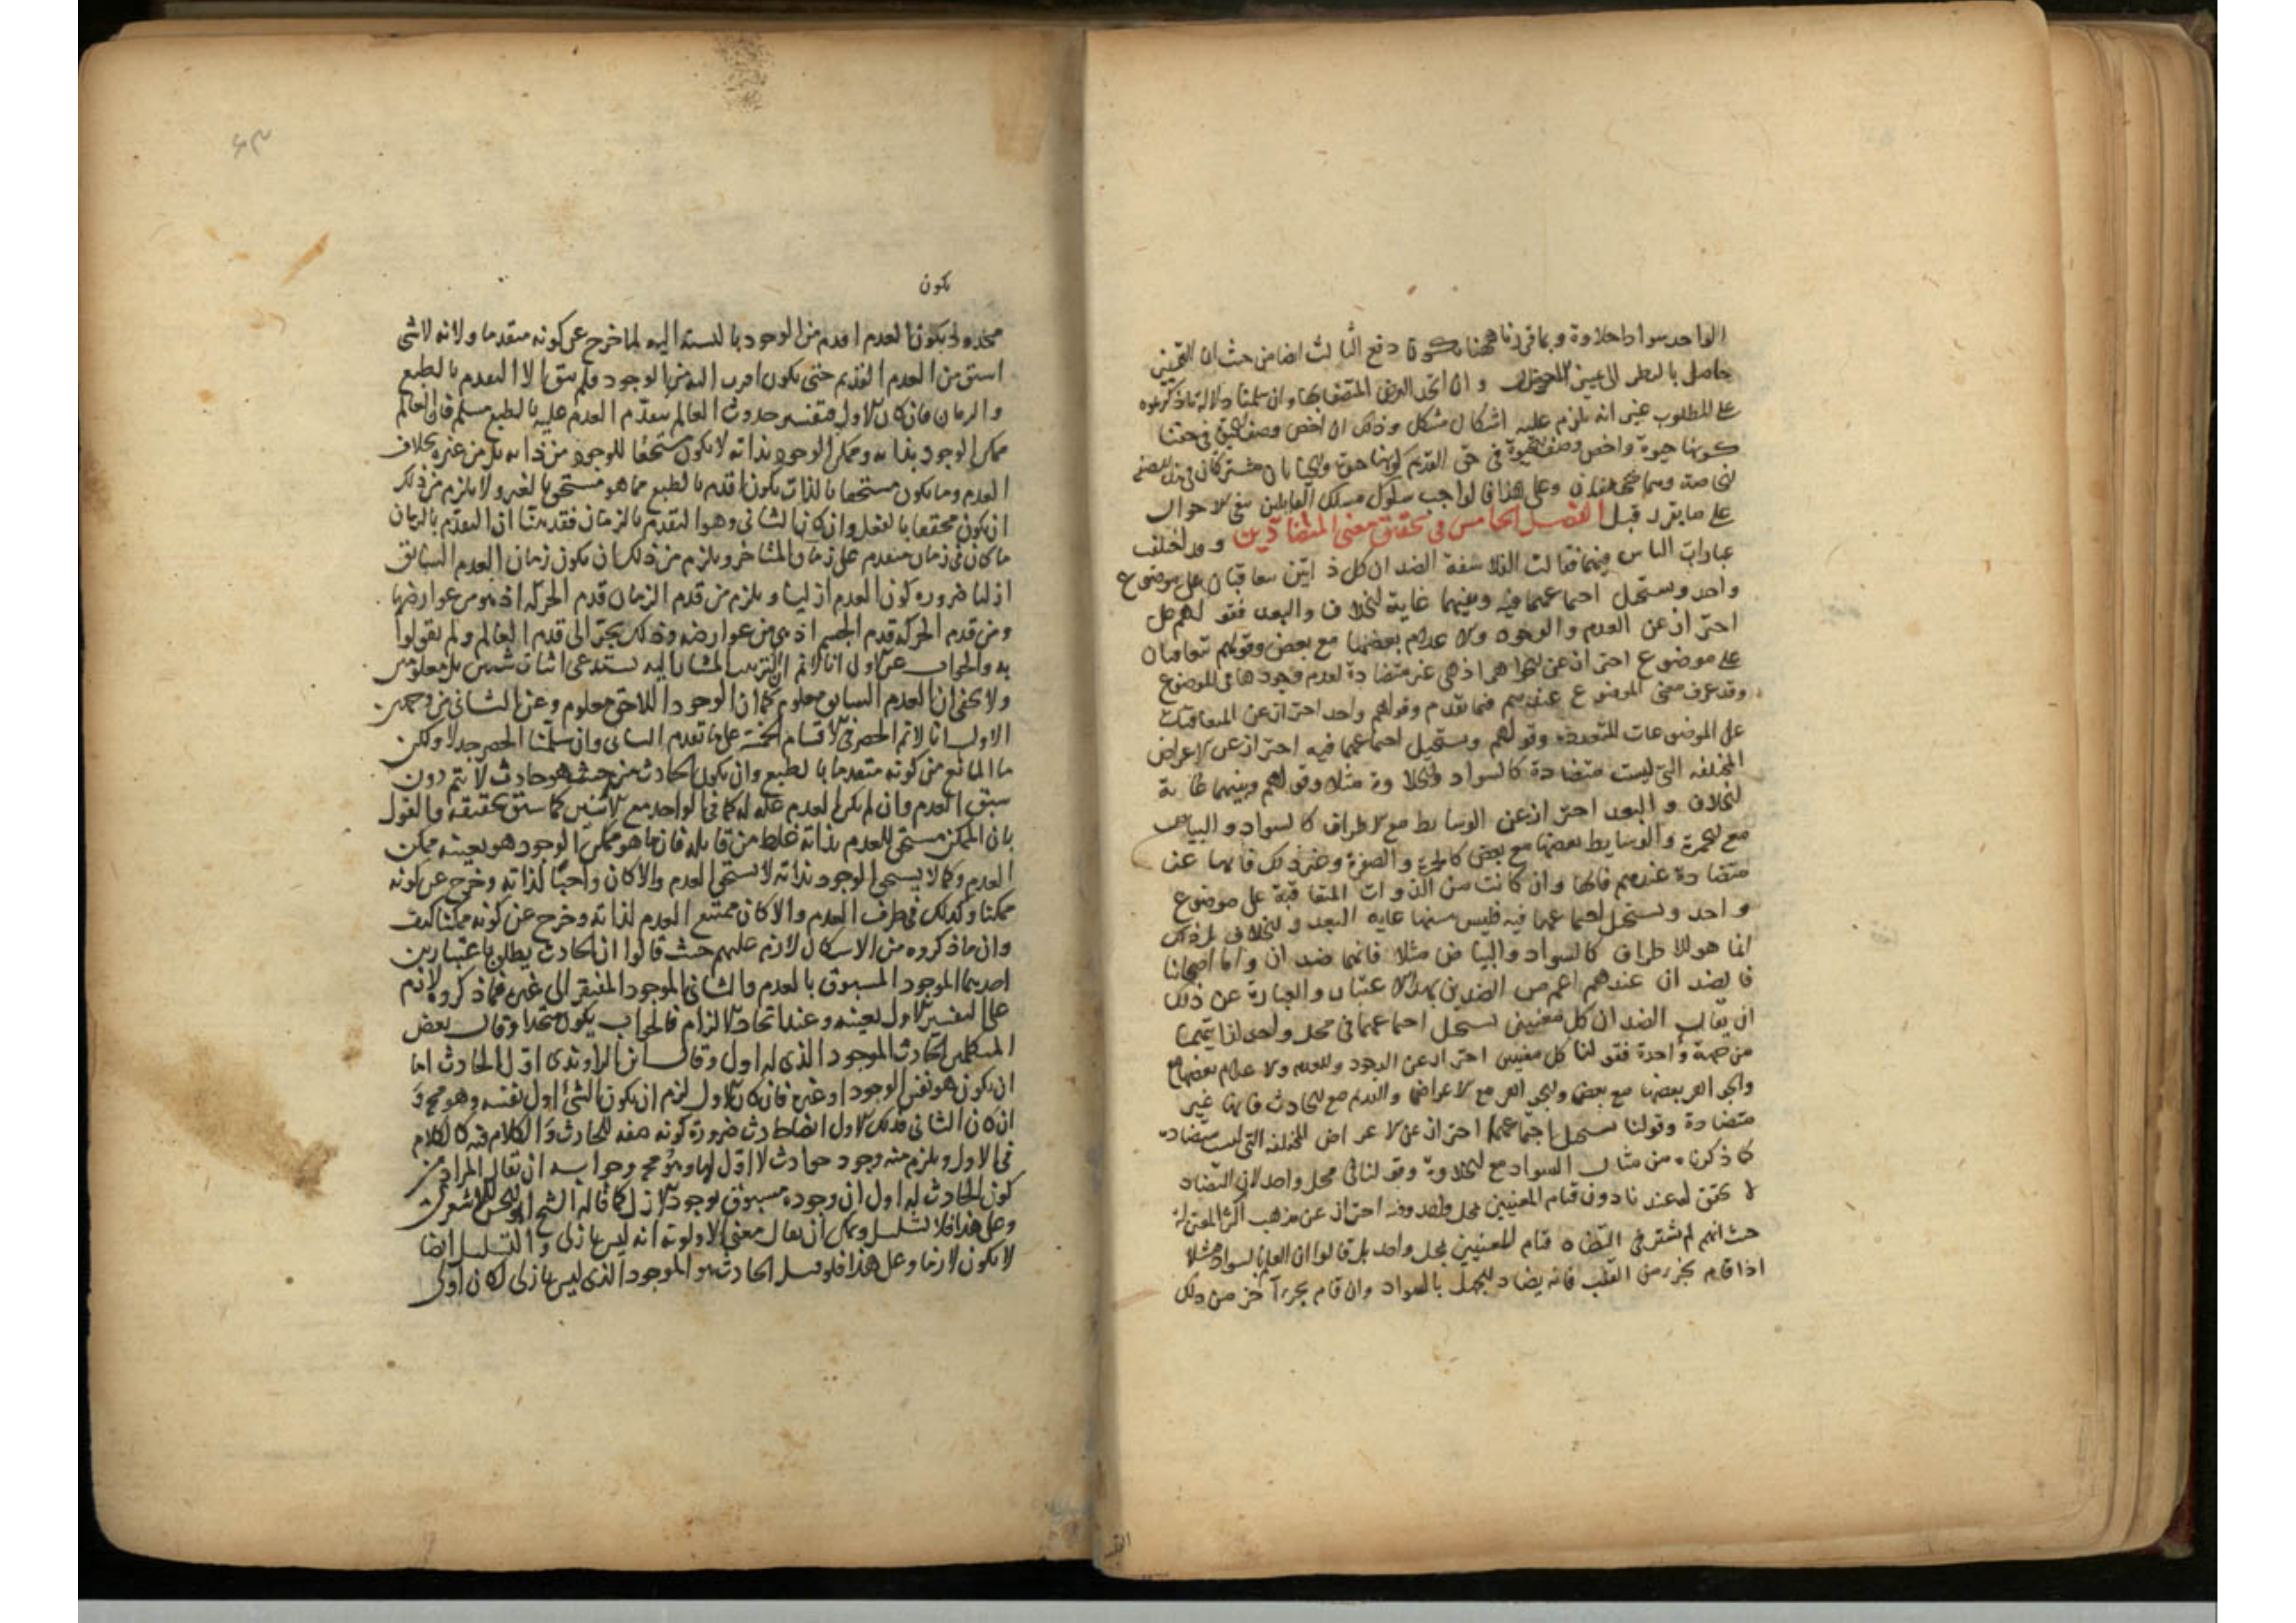 الواحد سوادا حلاوة وبما قررناه ههنا دفع الثالث ايضا من حيث ان
حاصل بالنظر الى وان اتحد العرض المتصف بها وان سلمنا دلالة ما ذكرتموه
على المطلوب غير انه يلزم عليه اشكال مشكل وذلك ان اخص وصف في حقنا
كونها حيوة واخص وصف الحيوة في حق القديم كونها حيوة
وعلى هذا فالواجب سلوك مسلك القايلين بنفي الاحوال
على ما يقرر قبل الفصل الخامس في تحقيق معنى المتضادين وقد اختلفت
عبارات الناس فيهما فقالت الفلاسفة الضدان كل ذاتين يتعاقبان على موضوع
واحد ويستحيل اجتماعهما فيه وبينهما غاية الخلاف والبعد فقولهم كل
احتراز عن العدم والوجود والاعدام بعضها مع بعض وقولهم يتعاقبان
على موضوع احتراز عن الجواهر اذ هي غير متضادة لعدم وجودها في الموضوع
وقد عرف معنى الموضوع عندهم فيما تقدم وقولهم واحد احتراز عن المتعاقبات
على الموضوعات المتعددة وقولهم ويستحيل اجتماعهما فيه احتراز عن الاعراض
المختلفة التي ليست متضادة كالسواد والحلاوة مثلا وقولهم وبينهما غاية
الخلاف والبعد احتراز عن الوسايط مع الاطراف كالسواد والبياض
مع الحمرة والوسايط بعضها مع بعض كالحمرة والصفرة وغير ذلك فانها غير
متضادة عندهم فانها وان كانت من الذوات المتعاقبة على موضوع
واحد ويستحيل اجتماعهما فيه فليس بينهما غاية البعد والخلاف بل ذلك
انما هو للاطراف كالسواد والبياض مثلا فانهما ضدان واما اصحابنا
فالضدان عندهم اعم من الضدين بهذا الاعتبار والعبارة عن ذلك
ان يقال الضدان كل معنيين يستحيل اجتماعهما في محل واحد لذاتيهما
من جهة واحدة فقولنا كل معنيين احتراز عن الوجود والعدم والاعدام بعضها مع
والجواهر بعضها مع بعض والجواهر مع الاعراض والقديم مع الحادث فانها غير
متضادة وقولنا يستحيل اجتماعهما احتراز عن الاعراض المختلفة التي ليست متضادة
كما ذكرناه من مثال السواد مع الحلاوة وقولنا في محل واحد لان التضاد
لا يتحقق عندنا دون قيام المعنيين بمحل واحد وفيه احتراز عن مذهب اكثر المعتزلة
حيث انهم لم يشترطوا في التضاد قيام المعنيين بمحل واحد بل قالوا ان العلم بالسواد مثلا
اذا قام بجزء من القلب فانه يضاد الجهل بالسواد وان قام بجزء آخر من ذلك
يكون
العدم اقدم من الوجود بالنسبة اليه لما خرج عن كونه متقدما ولانه لا شي
اسبق من العدم القديم حتى يكون اقرب اليه من الوجود فلم يبق الا التقدم بالطبع
والزمان فان كان الاول فتفسير حدوث العالم بتقدم العدم عليه بالطبع مسلم فان العالم
ممكن الوجود بذاته وممكن الوجود بذاته لا يكون مستحقا للوجود من ذاته بل من غيره بخلاف
العدم وما يكون مستحقا بالذات يكون اقدم بالطبع مما هو مستحق بالغير ولا يلزم من ذلك
ان يكون محققا بالفعل وان كان الثاني وهو التقدم بالزمان فقد بينا ان التقدم بالزمان
ما كان في زمان متقدم على زمان المتاخر ويلزم من ذلك ان يكون زمان العدم السابق
ازليا ضرورة كون العدم ازليا ويلزم من قدم الزمان قدم الحركة اذ هو من عوارضها
ومن قدم الحركة قدم الجسم اذ هي من عوارضه وذلك يجر الى قدم العالم ولم يقولوا
به والجواب عن الاول انا لا نسلم ان الترتيب المشار اليه يستدعي اثبات شيئين بل معلومين
ولا يخفى ان العدم السابق معلوم كما ان الوجود اللاحق معلوم وعن الثاني من وجهين
الاول انا لا نسلم الحصر في الاقسام الخمسة على ما تقدم الثاني وان سلمنا الحصر جدلا ولكن
ما المانع من كونه متقدما بالطبع وان يكون الحادث من حيث هو حادث لا يتم دون
سبق العدم وان لم يكن العدم علة له كما في الواحد مع الاثنين كما سبق تحقيقه والقول
بان الممكن مستحق للعدم بذاته غلط من قايله فان ما هو ممكن الوجود هو بعينه ممكن
العدم وكما لا يستحق الوجود بذاته لا يستحق العدم والا كان واجبا لذاته وخرج عن كونه
ممكنا وكذلك في طرف العدم والا كان ممتنع العدم لذاته وخرج عن كونه ممكنا كيف
وان ما ذكروه من الاشكال لازم عليهم حيث قالوا ان الحادث يطلق باعتبارين
احدهما الموجود المسبوق بالعدم والثاني الموجود المفتقر الى غيره فما ذكروه لازم
على التفسير الاول بعينه وعند اتحاد الالزام فالجواب يكون متحدا وقال بعض
المتكلمين الحادث الموجود الذي له اول وقال ابن الراوندي اول الحادث اما
ان يكون هو نفس الوجود او غيره فان كان الاول لزم ان يكون الشئ اول نفسه وهو مح و
ان كان الثاني فذلك الاول ايضا حادث ضرورة كونه صفة للحادث والكلام فيه كالكلام
في الاول ويلزم منه وجود حوادث لا اول لها وهو مح وجوابه ان يقال المراد من
كون الحادث له اول ان وجوده مسبوق بوجود الازل كما قاله الشيخ ابو الحسن الاشعري
وعلى هذا فلا تسلسل ويمكن ان يقال معنى الاولوية انه ليس بازلي والتسلسل ايضا
لا يكون لازما وعلى هذا فلو قيل الحادث هو الموجود الذي ليس بازلي لكان اولى